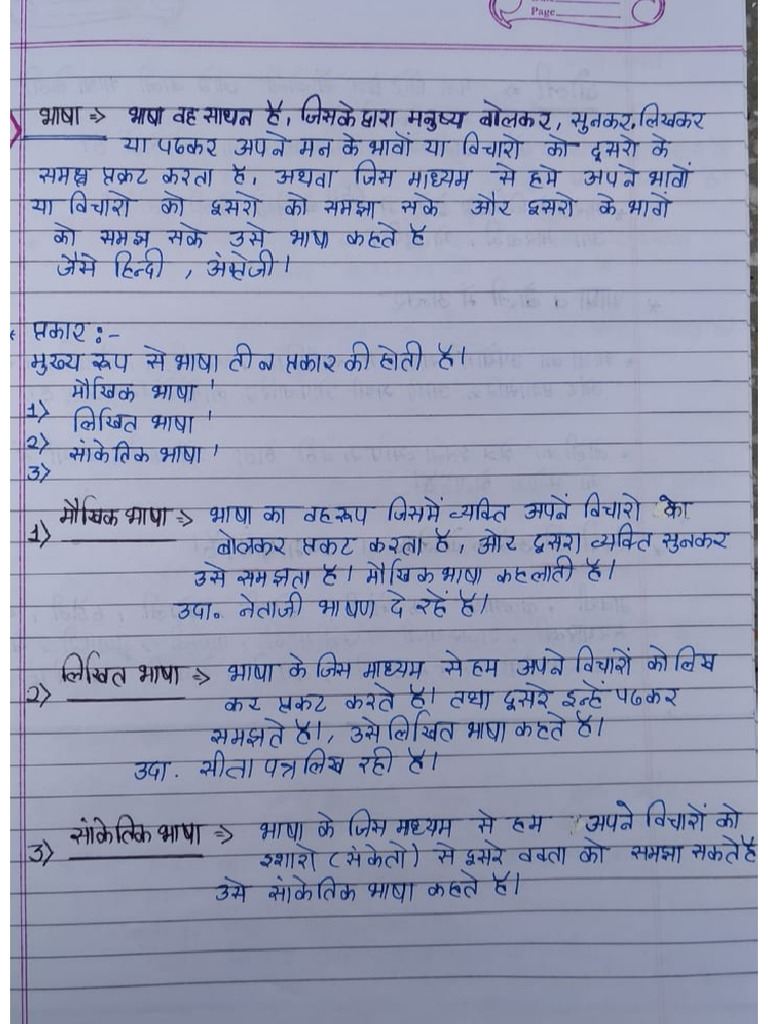 Page
भाषा => भाषा वह साधन है, जिसके द्वारा मनुष्य बोलकर, सुनकर, लिखकर
या पढकर अपने मन के भावों या विचारो को दूसरो के
समक्ष प्रकट करता है, अथवा जिस माध्यम से हमे अपने भावों
या विचारो को दूसरो को समझा सके और दूसरो के भावो
को समझ सके उसे भाषा कहते है
जैसे हिन्दी , अंग्रेजी।
प्रकार :-
मुख्य रूप से भाषा तीन प्रकार की होती है।
1> मौखिक भाषा '
2> लिखित भाषा '
3> सांकेतिक भाषा '
1> मौखिक भाषा => भाषा का वह रूप जिसमें व्यक्ति अपनें विचारो को
बोलकर प्रकट करता है, और दूसरा व्यक्ति सुनकर
उसे समझता है। मौखिक भाषा कहलाती है।
उदा. नेताजी भाषण दे रहें है।
2> लिखित भाषा => भाषा के जिस माध्यम से हम अपने विचारों को लिख
कर प्रकट करते है। तथा दूसरे इन्हें पढकर
समझते है।, उसे लिखित भाषा कहते है।
उदा. सीता पत्र लिख रही है।
3> सांकेतिक भाषा => भाषा के जिस माध्यम से हम अपने विचारों को
इशारो (संकेतो) से दूसरे वक्ता को समझा सकते है
उसे सांकेतिक भाषा कहते है।